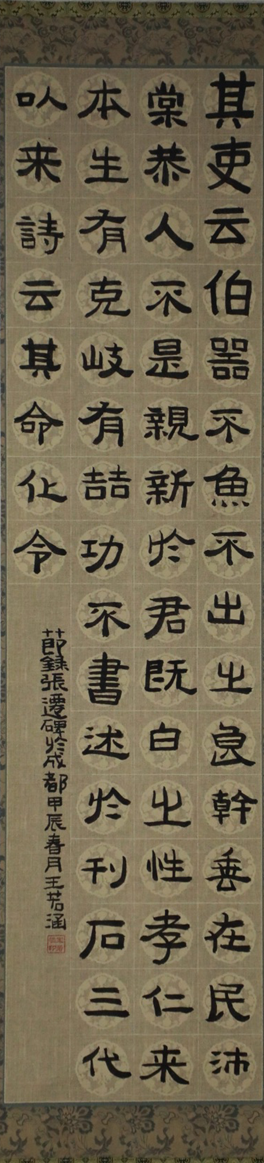 其吏云伯噐不魚不出之良幹垂在民沛
棠恭人不是親新於君既白之性孝仁来
本生有克岐有喆功不書述於刊石三代
以来詩云其命化令
節錄張遷碑於成都甲辰春月王若涵